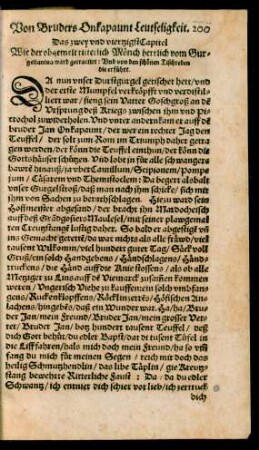 Von Bruders Onkapaunt Leutseligkeit. 200
Das zwey vnd viertzigst Capitel
Wie der obgemelt ritterlich Mönch herrlich vom Gur-
gellantua ward getractiert: Vnd von den schönen Tischreden
die er führt.
DA nun vnser Durstgurgel genschet hett/vnd
der erste Mumpfel verkäpfft vnd verdistil-
liert war/fieng sein Vatter Goschgroß an deß
Vrsprung deß Kriegs zwischen jhm vnd Py-
trochol zuwiderholen. Vnd vnter andern kam er auff de
bruder Jan Onkapaunt/der wer ein rechter Jag den
Teuffel/der solt zum Rom im Triumph daher getra-
gen werden/der könn die Teuffel einthun/der könn die
Gottshäuser schützen. Vnd lobt jn für alle schwangers
baurs hinauß/ja vber Camillum/Scipionem/Pompe
jum/Cäsarem vnd Themistoclem: Da begert alsbalt
vnser Gurgelstroß/daß man nach jhm schicke/sich mit
jhm von Sachen zu berathschlagen. Hiezu ward sein
Hoffmeister abgesand/der bracht jhn Mardocheisch
auff deß Grandgosiers Maulesel/mit seiner plawgemal
ten Creutzstange lustig daher. So bald er abgestigt vñ
ins Gemacht getrett/da war nichts als alle fräwd/viel
tausent Wilkomm/viel hundert guter Tag/Särk voll
Gruß/ein solch Handgebens/Händschlagens/Händ
truckens/die Händ auff die Knie stossens/als ob alle
Metzger zu Lins auff de Viemarck zusamen kommen
weren/Vngerisch Viehe zu kauffen: ein solch vmbfan-
gens/Ruckenklopffens/Röcklinzerrēs/Höfischen An-
lachens/hingebēs/daß ein Wunder war. Ha/ha/Bru-
der Jan/mein Freund/Bruder Jan/mein grosser Vet-
ter/Bruder Jan/botz hundert tausent Teuffel/deß
dich Gott behüt/du edler Bapst/dat di tusent Tüfel in
die Liffsahren/hals mich doch mein Freund/ha so vmb
fang du mich für meinen Segen/reich mir doch das
heilig Schmutzhendlin/das libe Täplin/die Kreutz-
stang bewehrte Ritterliche Faust: Da/da du edler
Schwantz/ich entmier dich schier vor lieb/ich zertruck
dich